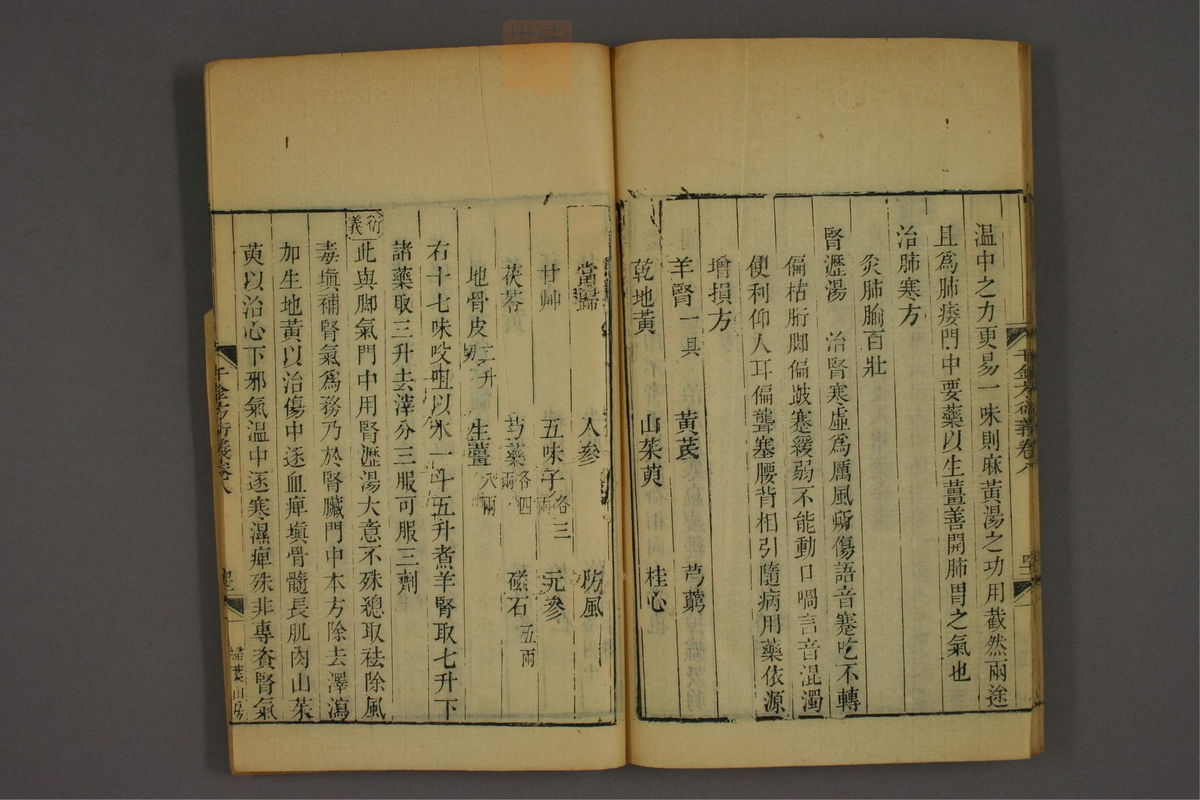 溫中之力更易一味則麻黃湯之功用截然兩途
且爲肺痿門中要藥以生薑善開肺胃之氣也
治肺寒方
灸肺腧百壯
腎瀝湯 治腎寒虛爲厲風所傷語音蹇吃不轉
偏枯胻脚偏跛蹇緩弱不能動口喎言音混濁
便利仰人耳偏聾塞腰背相引隨病用藥依源
增損方
羊腎一具 黃芪 芎藭
乾地黃 山茱萸 桂心
當歸 人參 防風
甘艸 五味子各三兩 元參
茯苓 芍藥各四兩 磁石五兩
地骨皮二升切 生薑八兩
右十七味㕮咀以水一斗五升煮羊腎取七升下
諸藥取三升去滓分三服可服三劑
衍義
此與脚氣門中用腎瀝湯大意不殊總取祛除風
毒塡補腎氣爲務乃於腎臟門中本方除去澤瀉
加生地黃以治傷中逐血痺塡骨髓長肌肉山茱
萸以治心下邪氣溫中逐寒濕痺殊非專資腎氣
千金方衍義卷八
掃葉山房